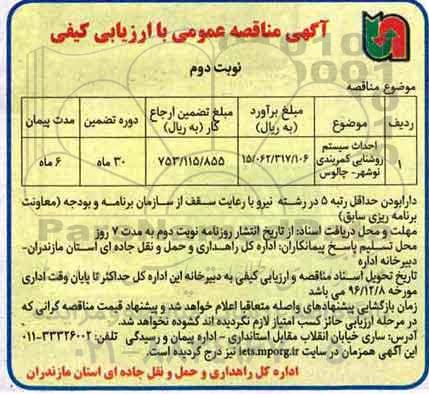 آگهی مناقصه عمومی با ارزیابی کیفی
نوبت دوم
موضوع مناقصه
ردیف موضوع مبلغ برآورد (به ریال) مبلغ تضمین ارجاع کار (به ریال) دوره تضمین مدت پیمان
۱ احداث سیستم روشنایی کمربندی نوشهر- چالوس ۱۵/۰۶۲/۳۱۷/۱۰۶ ۷۵۳/۱۱۵/۸۵۵ ۳۰ ماه ۶ ماه
دارابودن حداقل رتبه ۵ در رشته نیرو با رعایت سقف از سازمان برنامه و بودجه (معاونت
برنامه ریزی سابق)
مهلت و محل دریافت اسناد: از تاریخ انتشار روزنامه نوبت دوم به مدت ۷ روز
محل تسلیم پاسخ پیمانکاران: اداره کل راهداری و حمل و نقل جاده ای استان مازندران-
دبیرخانه اداره
تاریخ تحویل اسناد مناقصه و ارزیابی کیفی به دبیرخانه این اداره کل حداکثر تا پایان وقت اداری
مورخه ۹۶/۱۲/۸ می باشد
زمان بازگشایی پیشنهادهای واصله متعاقبا اعلام خواهد شد و پیشنهاد قیمت مناقصه گرانی که
در مرحله ارزیابی حائز کسب امتیاز لازم نگردیده اند گشوده نخواهد شد.
آدرس: ساری خیابان انقلاب مقابل استانداری – اداره پیمان و رسیدگی تلفن: ۳۳۳۲۶۰۰۲-۰۱۱
این آگهی همزمان در سایت iets.mporg.ir نیز درج گردیده است.
اداره کل راهداری و حمل و نقل جاده ای استان مازندران